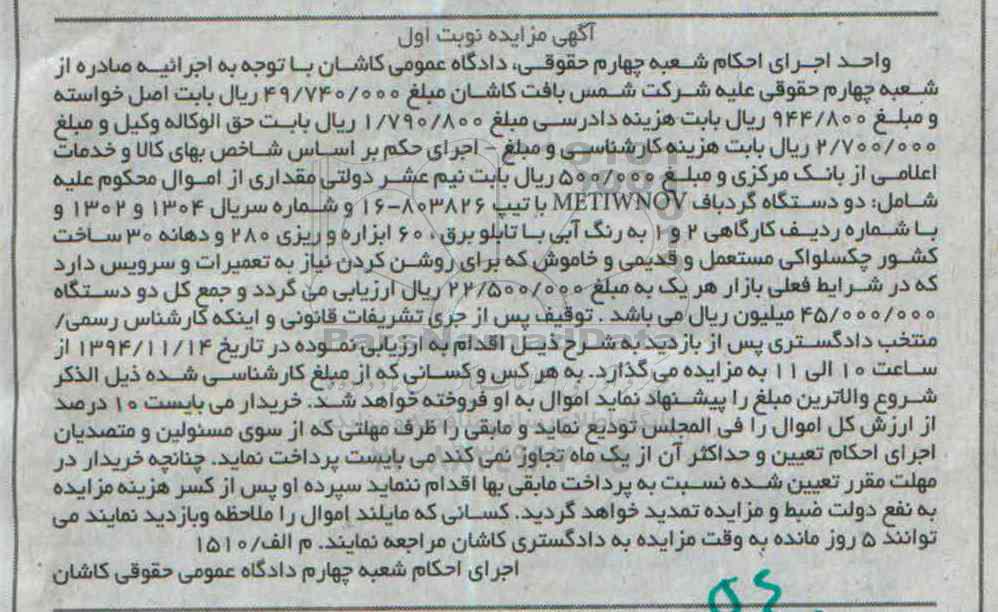 آگهی مزایده نوبت اول
واحد اجرای احکام شعبه چهارم حقوقی، دادگاه عمومی کاشان با توجه به اجرائیه صادره از
شعبه چهارم حقوقی علیه شرکت شمس بافت کاشان مبلغ ۴۹/۷۴۰/۰۰۰ ریال بابت اصل خواسته
و مبلغ ۹۴۴/۸۰۰ ریال بابت هزینه دادرسی مبلغ ۱/۷۹۰/۸۰۰ ریال بابت حق الوکاله وکیل و مبلغ
۲/۷۰۰/۰۰۰ ریال بابت هزینه کارشناسی و مبلغ - اجرای حکم بر اساس شاخص بهای کالا و خدمات
اعلامی از بانک مرکزی و مبلغ ۵۰۰/۰۰۰ ریال بابت نیم عشر دولتی مقداری از اموال محکوم علیه
شامل: دو دستگاه گردباف METIWNOV با تیپ ۸۰۳۸۲۶-۱۶ و شماره سریال ۱۳۰۴ و ۱۳۰۲ و
با شماره ردیف کارگاهی ۲ و ۱ به رنگ آبی با تابلو برق ۶۰۰ ابزاره و ریزی ۲۸۰ و دهانه ۳۰ ساخت
کشور چکسلواکی مستعمل و قدیمی و خاموش که برای روشن کردن نیاز به تعمیرات و سرویس دارد
که در شرایط فعلی بازار هر یک به مبلغ ۲۲/۵۰۰/۰۰۰ ریال ارزیابی می گردد و جمع کل دو دستگاه
۴۵/۰۰۰/۰۰۰ میلیون ریال می باشد . توقیف پس از جری تشریفات قانونی و اینکه کارشناس رسمی/
منتخب دادگستری پس از بازدید به شرح ذیل اقدام به ارزیابی نموده در تاریخ ۱۳۹۴/۱۱/۱۴ از
ساعت ۱۰ الی ۱۱ به مزایده می گذارد. به هر کس و کسانی که از مبلغ کارشناسی شده ذیل الذکر
شروع والاترین مبلغ را پیشنهاد نماید اموال به او فروخته خواهد شد. خریدار می بایست ۱۰ درصد
از ارزش کل اموال را فی المجلس تودیع نماید و مابقی را ظرف مهلتی که از سوی مسئولین و متصدیان
اجرای احکام تعیین و حداکثر آن از یک ماه تجاوز نمی کند می بایست پرداخت نماید. چنانچه خریدار در
مهلت مقرر تعیین شده نسبت به پرداخت مابقی بها اقدام ننماید سپرده او پس از کسر هزینه مزایده
به نفع دولت ضبط و مزایده تمدید خواهد گردید. کسانی که مایلند اموال را ملاحظه وبازدید نمایند می
توانند ۵ روز مانده به وقت مزایده به دادگستری کاشان مراجعه نمایند. م الف/۱۵۱۰
اجرای احکام شعبه چهارم دادگاه عمومی حقوقی کاشان